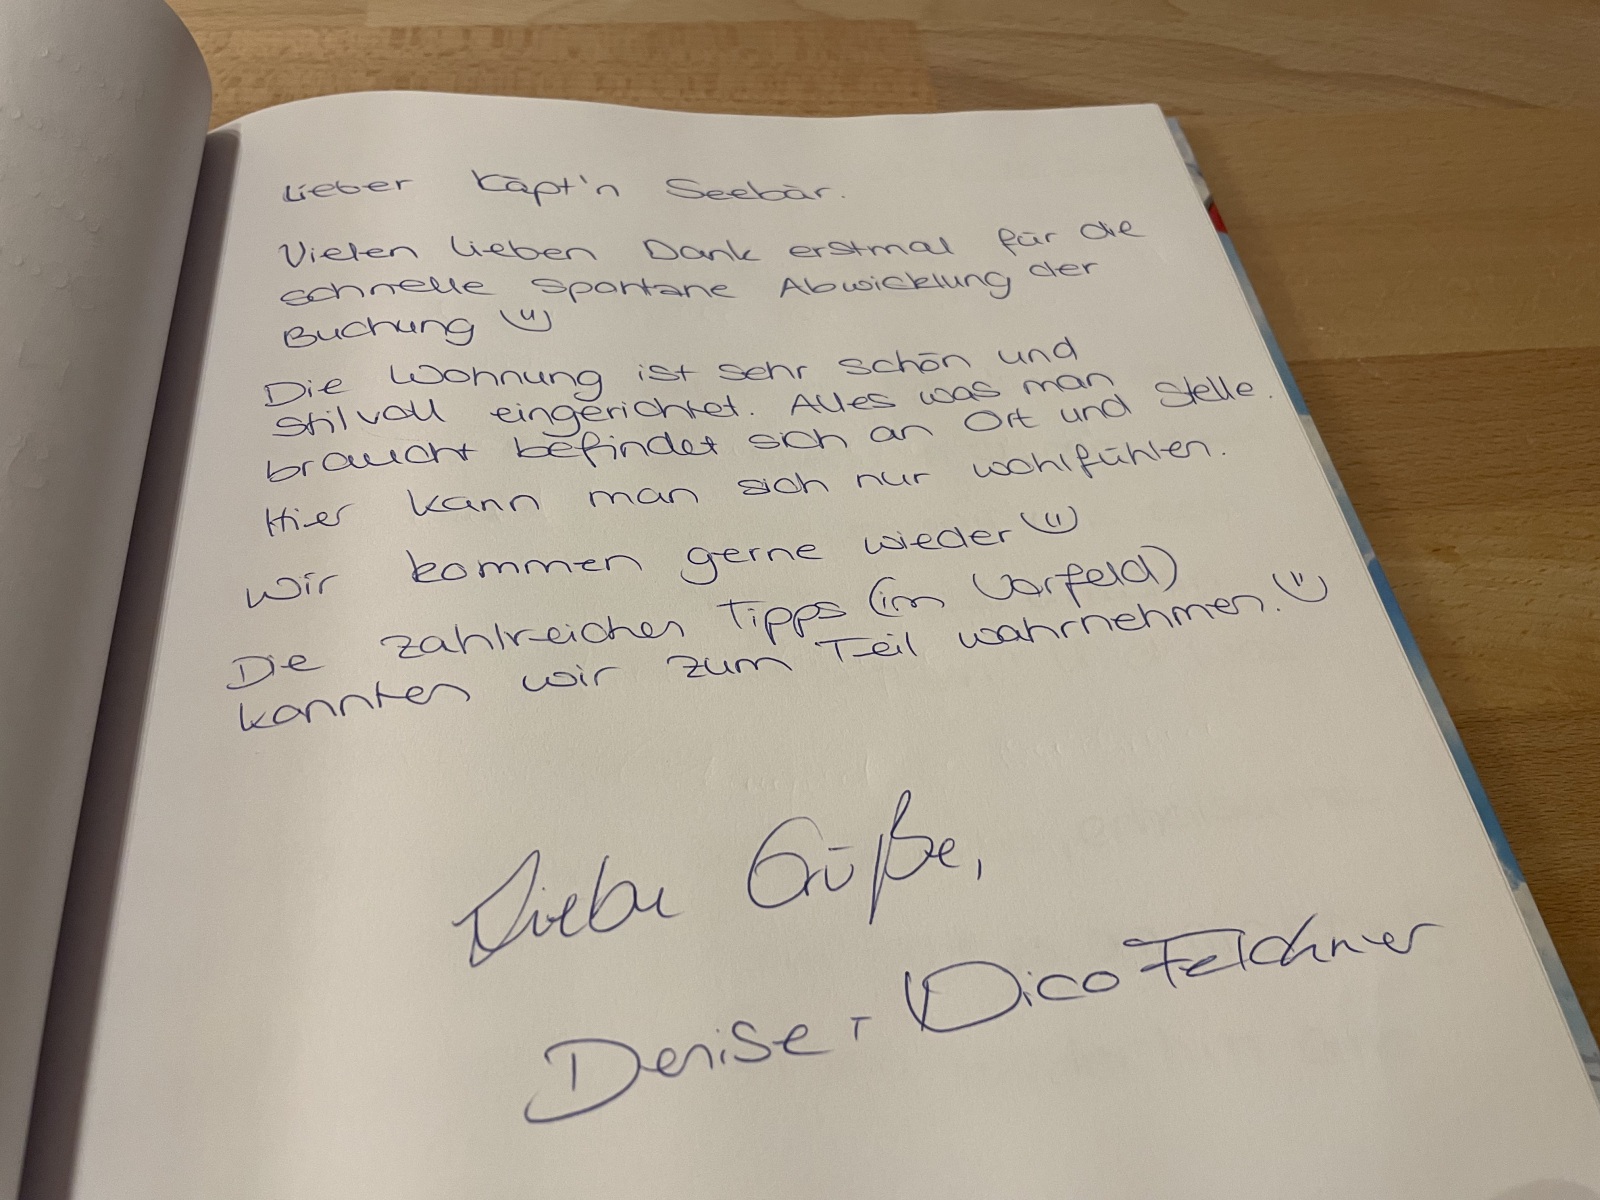 Lieber Käpt'n Seebär.
Vielen lieben Dank erstmal für die
schnelle spontane Abwicklung der
Buchung
Die Wohnung ist sehr schön und
stilvoll eingerichtet. Alles was man
braucht befindet sich an Ort und Stelle.
Hier kann man sich nur wohlfühlen.
Wir kommen gerne wieder
Die zahlreichen Tipps (im Vorfeld)
konnten wir zum Teil wahrnehmen.
Liebe Grüße,
Denise + Dico Felchner